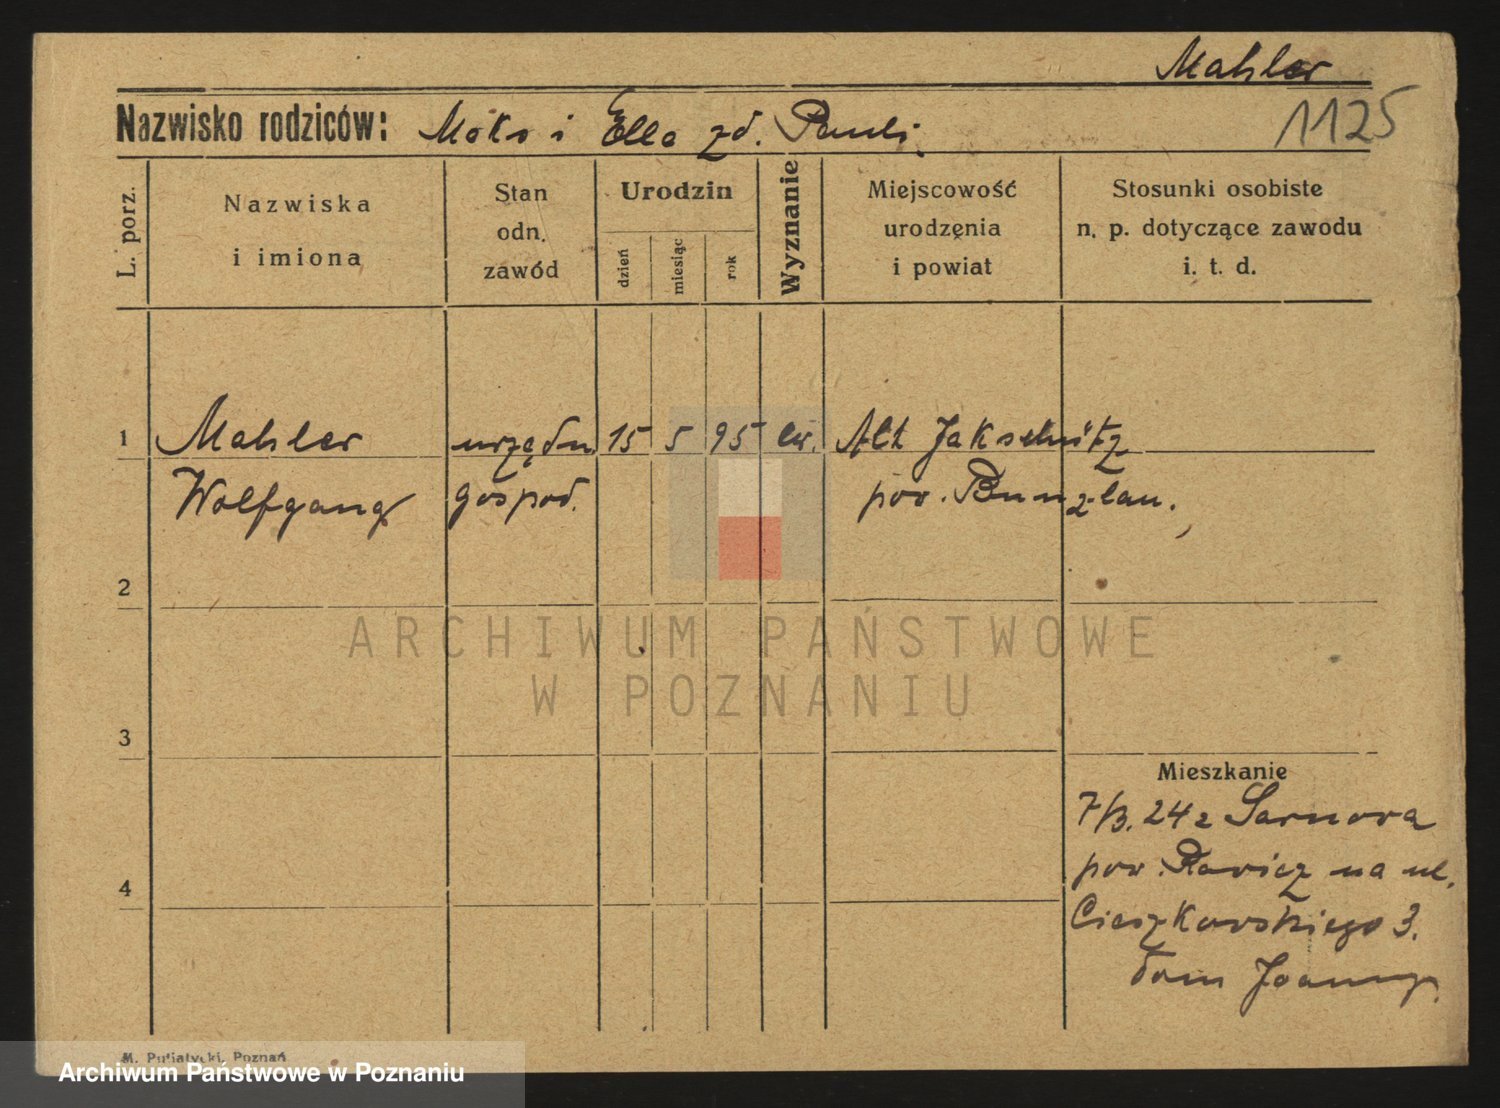 Mahler
1125
Nazwisko rodziców: Maks i Ella zd. Pauli
L. porz.
Nazwiska
i imiona
Stan
odn.
zawód
Urodzin
dzień
miesiąc
rok
Wyznanie
Miejscowość
urodzenia
i powiat
Stosunki osobiste
n. p. dotyczące zawodu
i. t. d.
1 Mahler urzędn. 15 5 95 ew. Alt Jakschitz
Wolfgang gospod. pow. Bunzlau.
2
ARCHIWUM PAŃSTWOWE
W POZNANIU
3
Mieszkanie
7/3. 24 z Sarnowa
pow. Rawicz na ul.
4
Cieszkowskiego 3.
dom
M. Putiatycki, Poznań
Archiwum Państwowe w Poznaniu